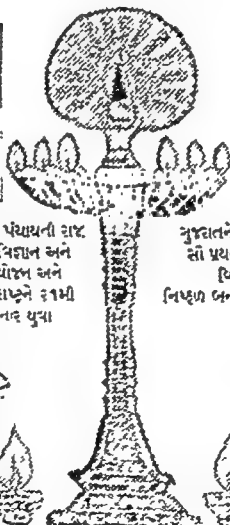 પંચાયતી રાજ
વિજ્ઞાન અને
યોજન અને
રાષ્ટ્રને ૨૧મી
નાર યુવા
ગુજરાતને
સૌ પ્રય
વિ
નિષ્ફળ બન